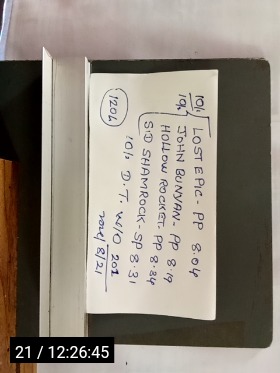 10/- LOST EPIC - PP 8.04
10/- JOHN BUNYAN - PP 8.19
HOLLOW ROCKET. PP 8.34
S.D SHAMROCK - SP 8.31
10/- D.T. W/O 201
120/-
2024/8/21
21 / 12:26:45